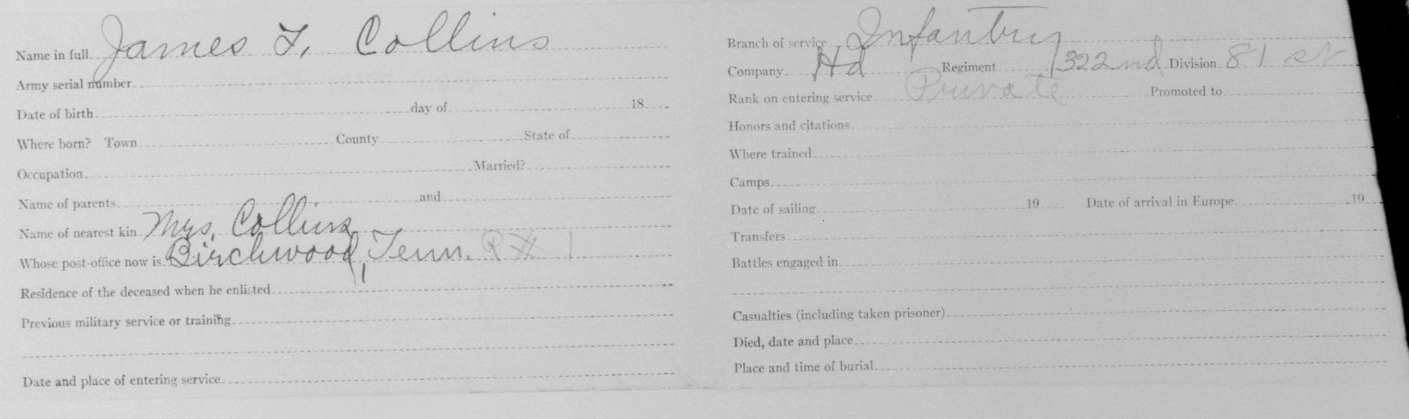 Name in full James T. Collins
Army serial number
Date of birth day of 18
Where born? Town County State of
Occupation Married?
Name of parents and
Name of nearest kin Mrs. Collins
Whose post-office now is Birchwood, Tenn. R# 1
Residence of the deceased when he enlisted
Previous military service or training
Date and place of entering service
Branch of service Infantry
Company Hd Regiment 322nd Division 81 st
Rank on entering service Private Promoted to
Honors and citations
Where trained
Camps
Date of sailing 19 Date of arrival in Europe 19
Transfers
Battles engaged in
Casualties (including taken prisoner)
Died, date and place
Place and time of burial